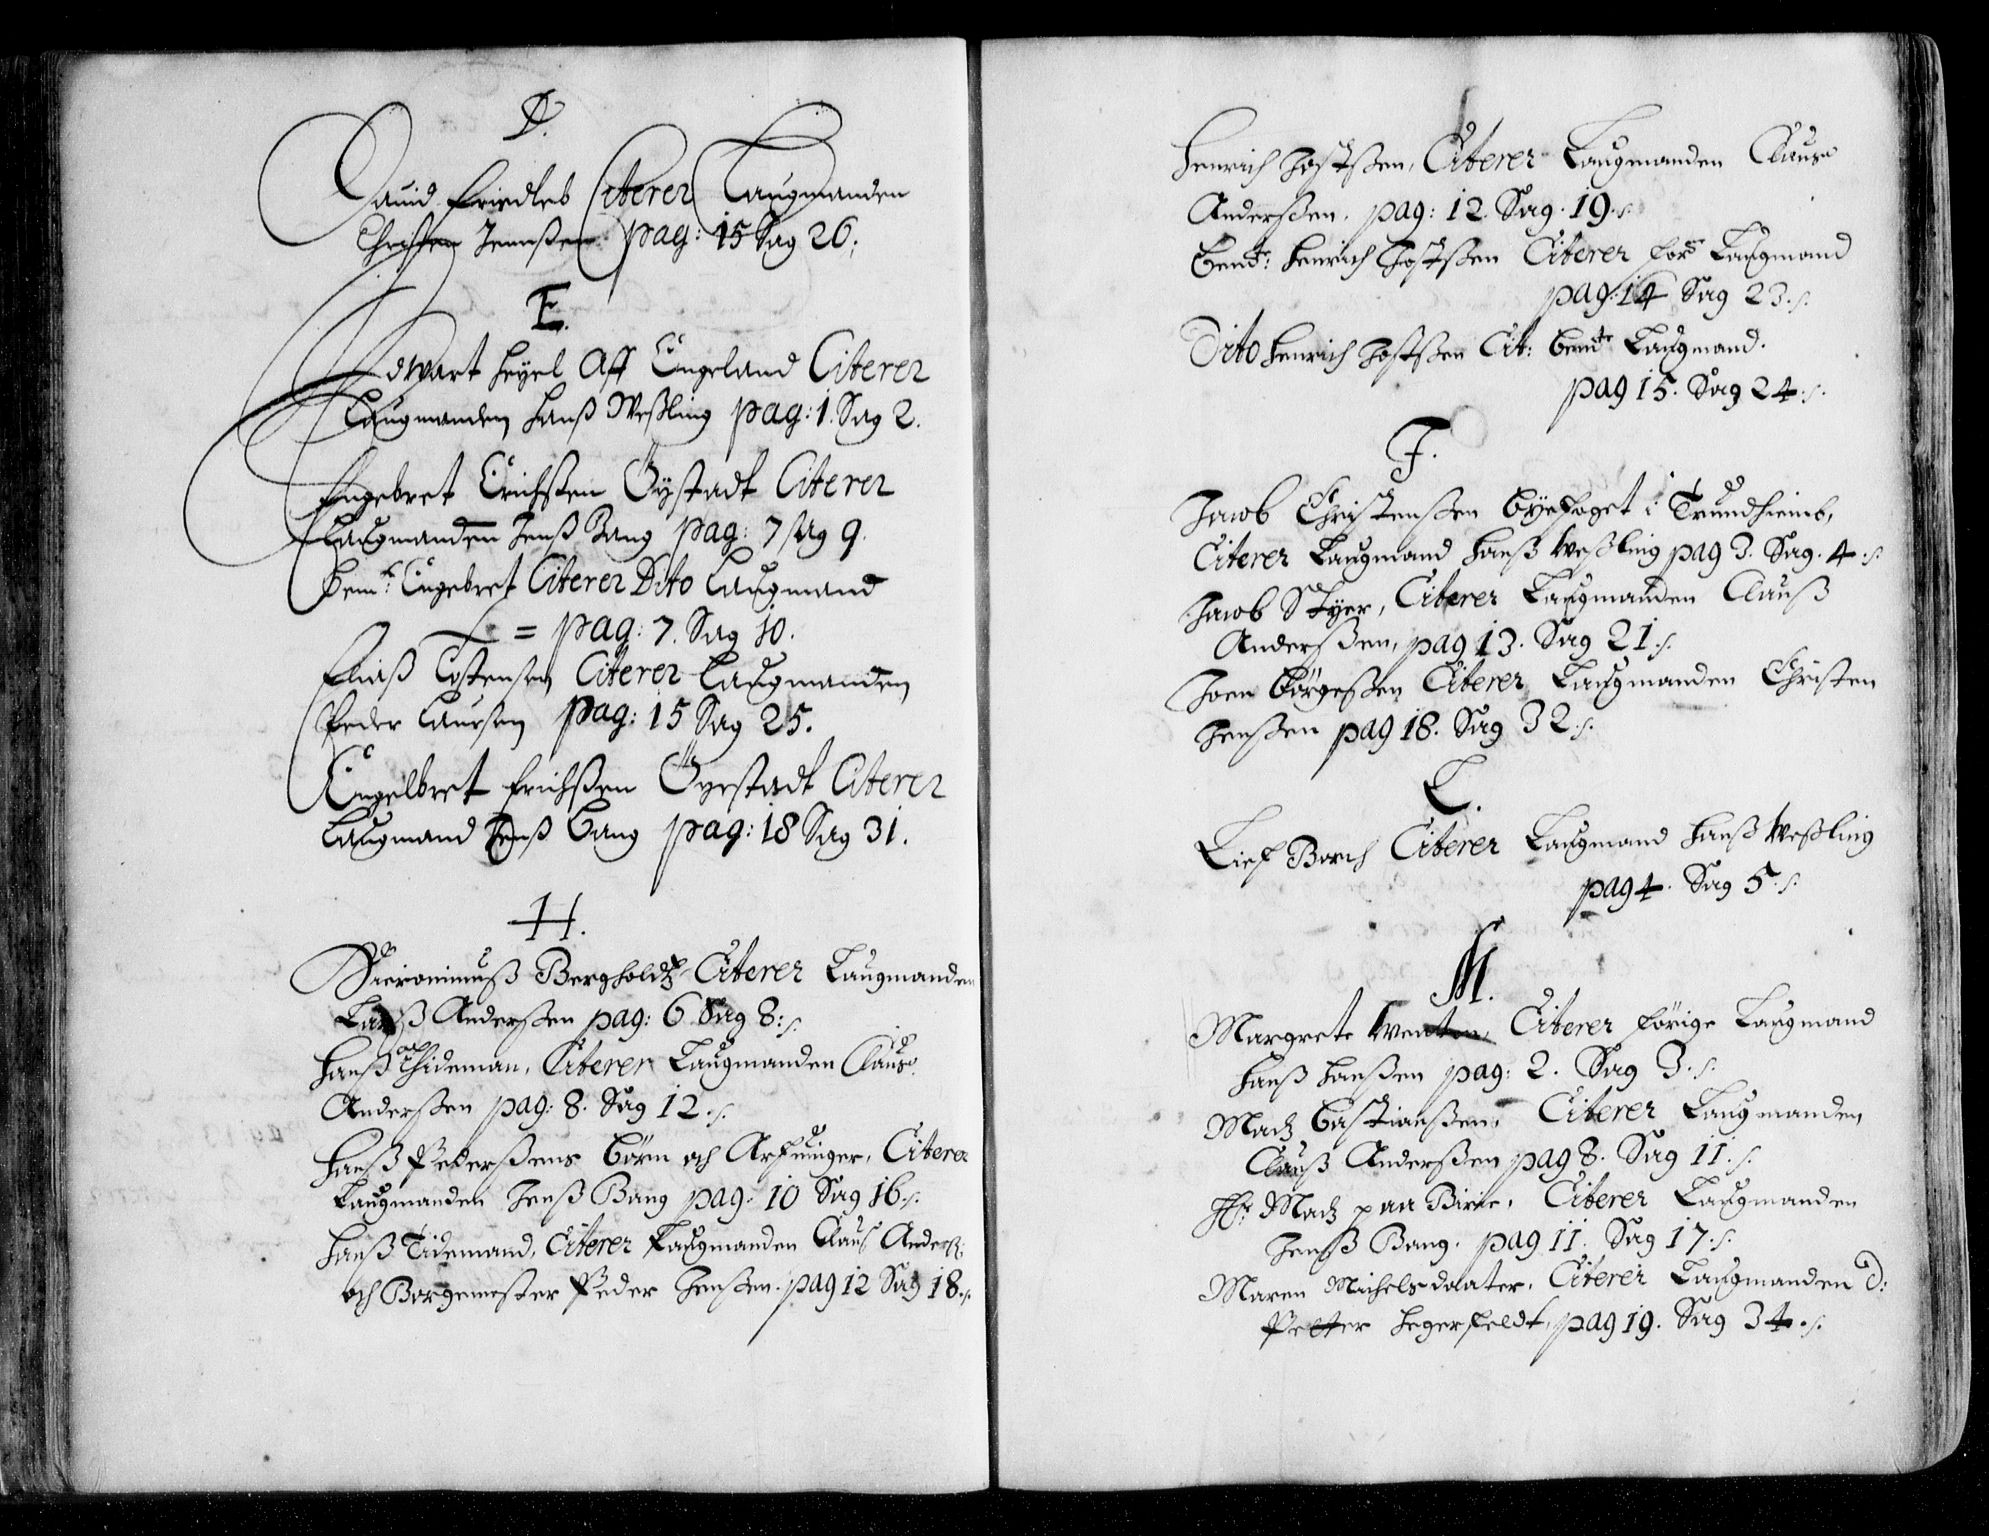 D.
Dauid Friedleb Citerer Laugmanden
Christen Jennßen. pag: 15 Sag 26;
E.
Edwart Heÿel Aff Engeland Citerer
Laugmanden Hanß Weßling pag: 1. Sag 2.
Engebret Erichßen Öÿstadt Citerer
Laugmanden Jenß Bang pag: 7 sag 9.
bem.t: Engebret Citerer Dito Laugmand
= pag: 7. Sag 10.
Eliaß Tostensen Citerer Laugmanden
Peder Laursen pag: 15 Sag 25.
Engelbret Erichßen Öÿestadt Citerer
Laugmand Jenß Bang pag: 18 Sag 31.
H.
Hieronimuß Bergholdtz Citerer Laugmanden
Anderßen pag: 6 Sag 8:/.
Hanß Thideman, Citerer Laugmanden Clauß
Anderßen pag: 8. Sag 12./.
Hanß Pederßens börn och Arfuinger, Citerer
Laugmanden Jenß Bang pag. 10 Sag 16./.
Hanß Tidemand, Citerer Laugmanden Clauß Anderß:
och Borgemester Peder Jenßen. pag 12 Sag 18./.
Henrich Jostßen, Citerer Laugmanden Clauß
Anderßen. pag: 12. Sag. 19./.
bemte: Henrich Jostßen Citerer forr Laugmand
pag: 14 Sag 23./.
Dito Henrich Jostßen Cit: bemte Laugmand.
pag 15. Sag 24./.
J.
Jacob Christenßen bÿefoget i Trundhiemb,
Citerer Laugmand Hanß Weßling pag 3. Sag. 4./.
Jacob Stÿer, Citerer Laugmanden Clauß
Anderßen, pag 13. Sag 21./.
Joen Börgeßen Citerer Laugmanden Christen
Jenßen pag 18. Sag 32./.
L.
Lief Borch Citerer Laugmand Hanß Weßling
pag 4. Sag 5./.
M.
Margrete Citerer forige Laugmand
Hanß Hanßen pag: 2. Sag 3./.
Madz Bastianßen, Citerer Laugmanden
Clauß Anderßen pag 8. Sag 11./.
Hr: Madz paa Citerer Laugmanden
Jenß Bang. pag 11. Sag 17./.
Maren Michelsdaater, Citerer Laugmanden D:
Petter Hegerfeldt, pag 19. Sag 34./.